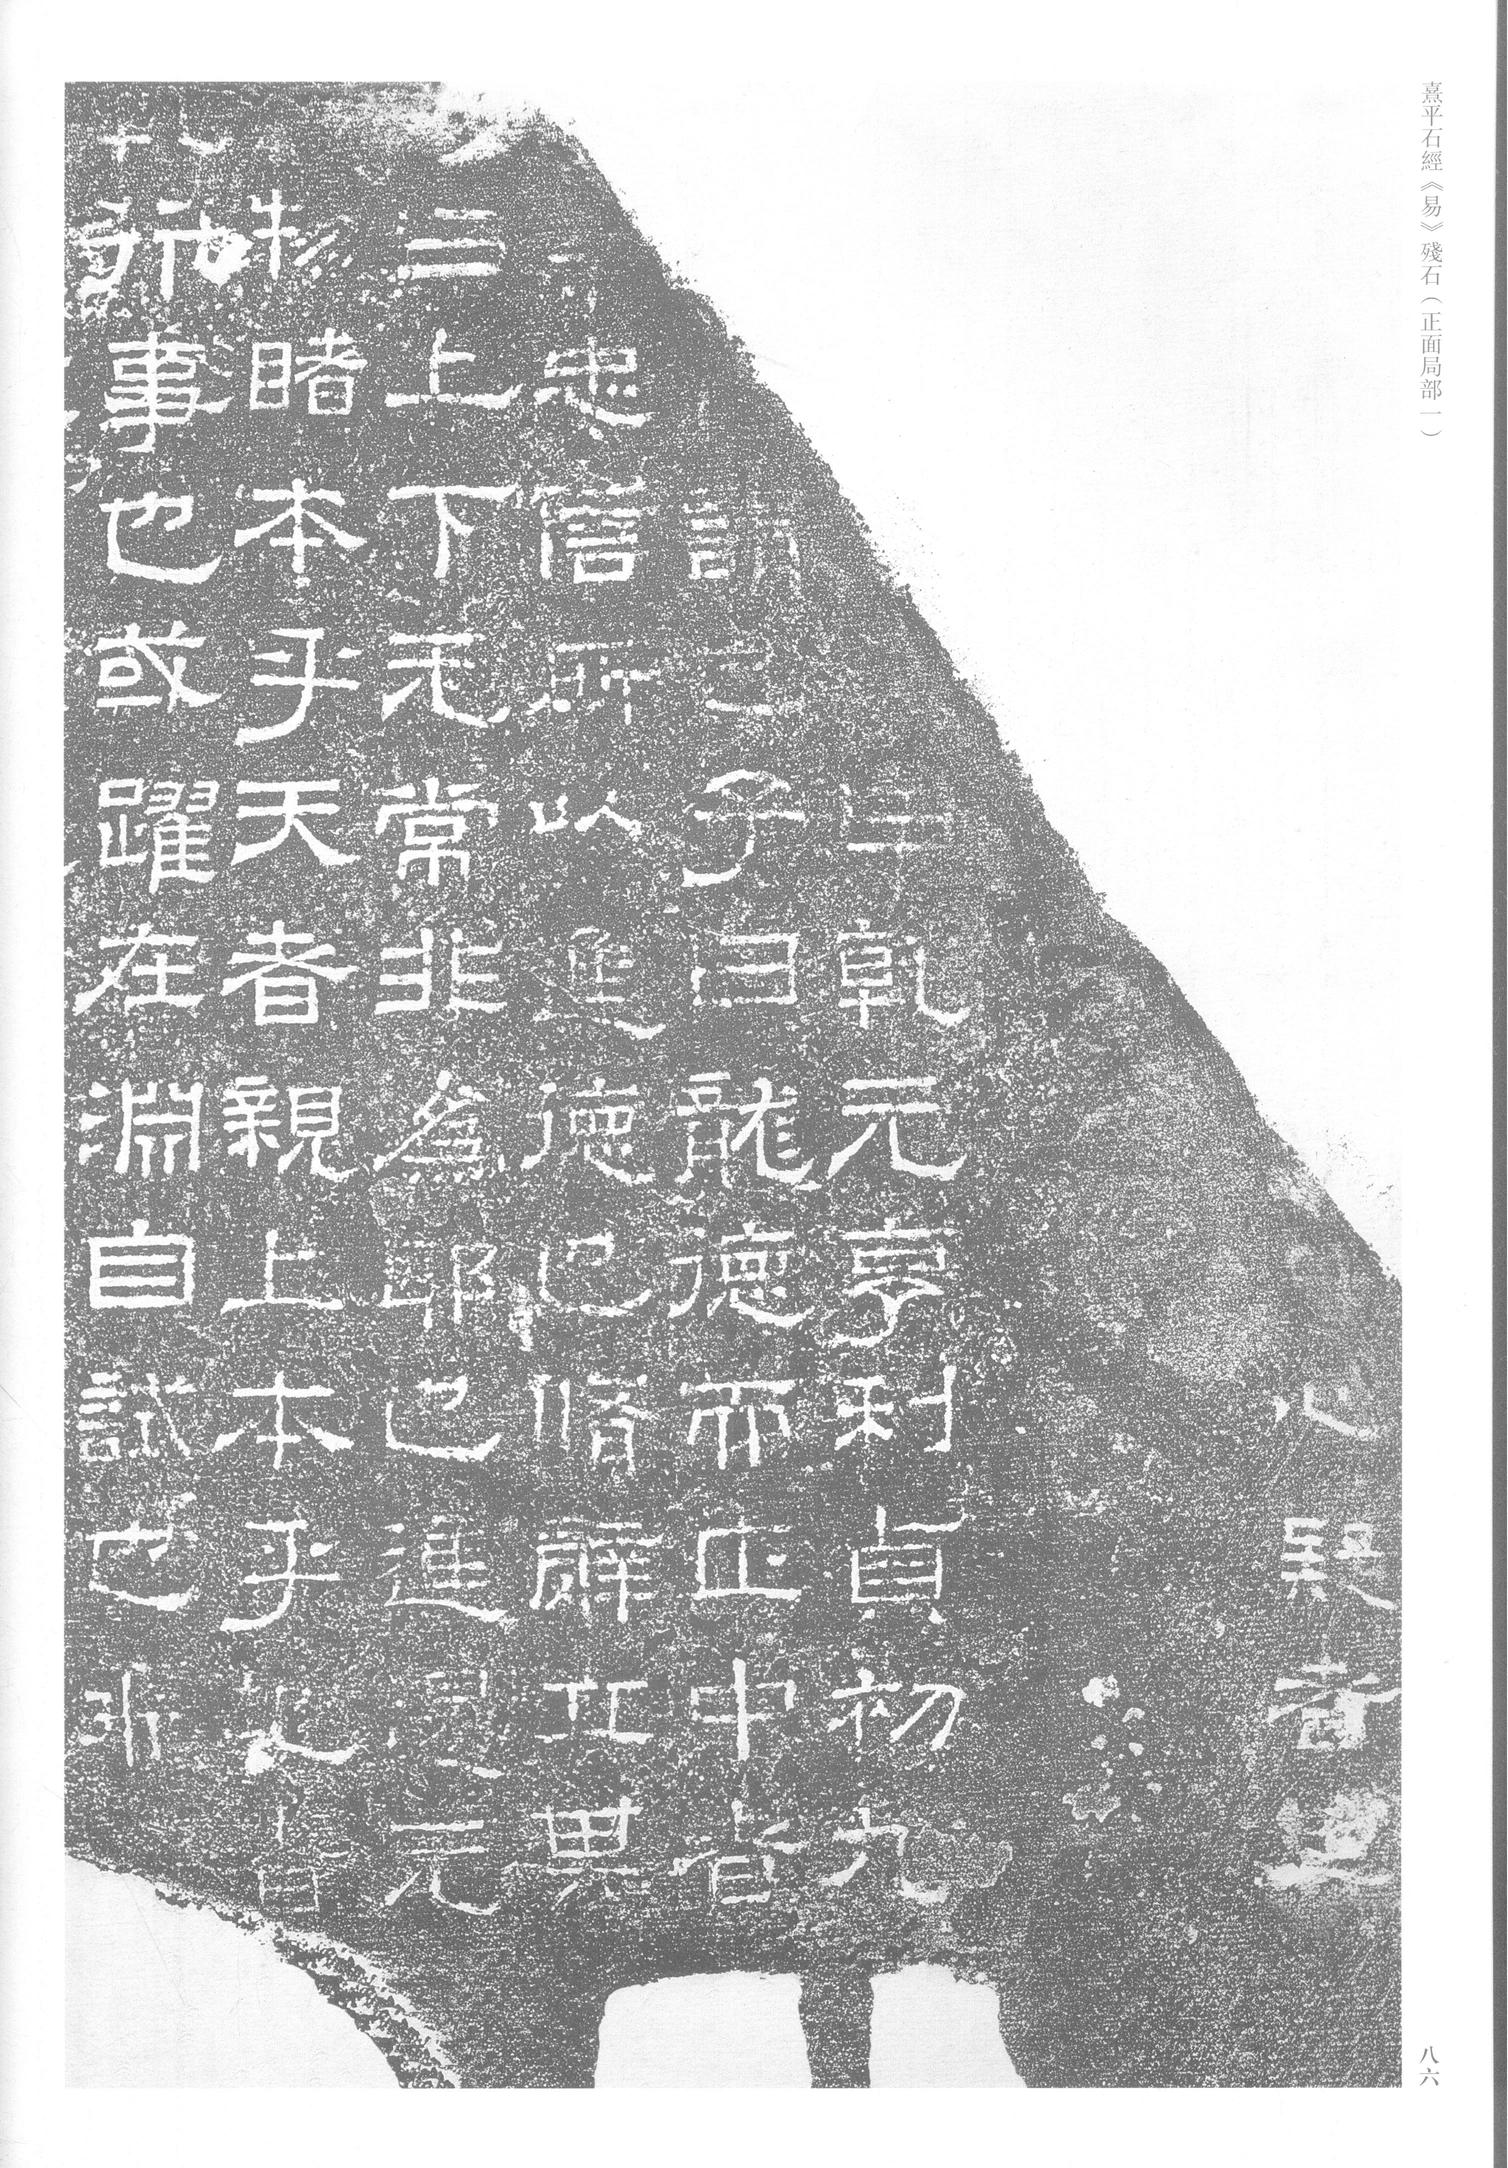 熹平石經《易》殘石（正面局部一）
心疑者
乾元亨利貞初九
謂也子曰龍德而正中者
忠信所以進德也脩辭立其
曰上下无常非為邪也進退无
物睹本乎天者親上本乎地者
行事也或躍在淵自試也飛
八六